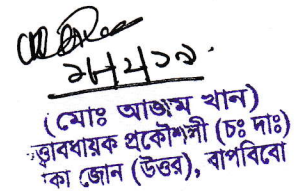 ২৮/৫/১৯
(মোঃ আজম খান)
ত্ত্বাবধায়ক প্রকৌশলী (চঃ দাঃ)
কা জোন (উত্তর), বাপবিবো